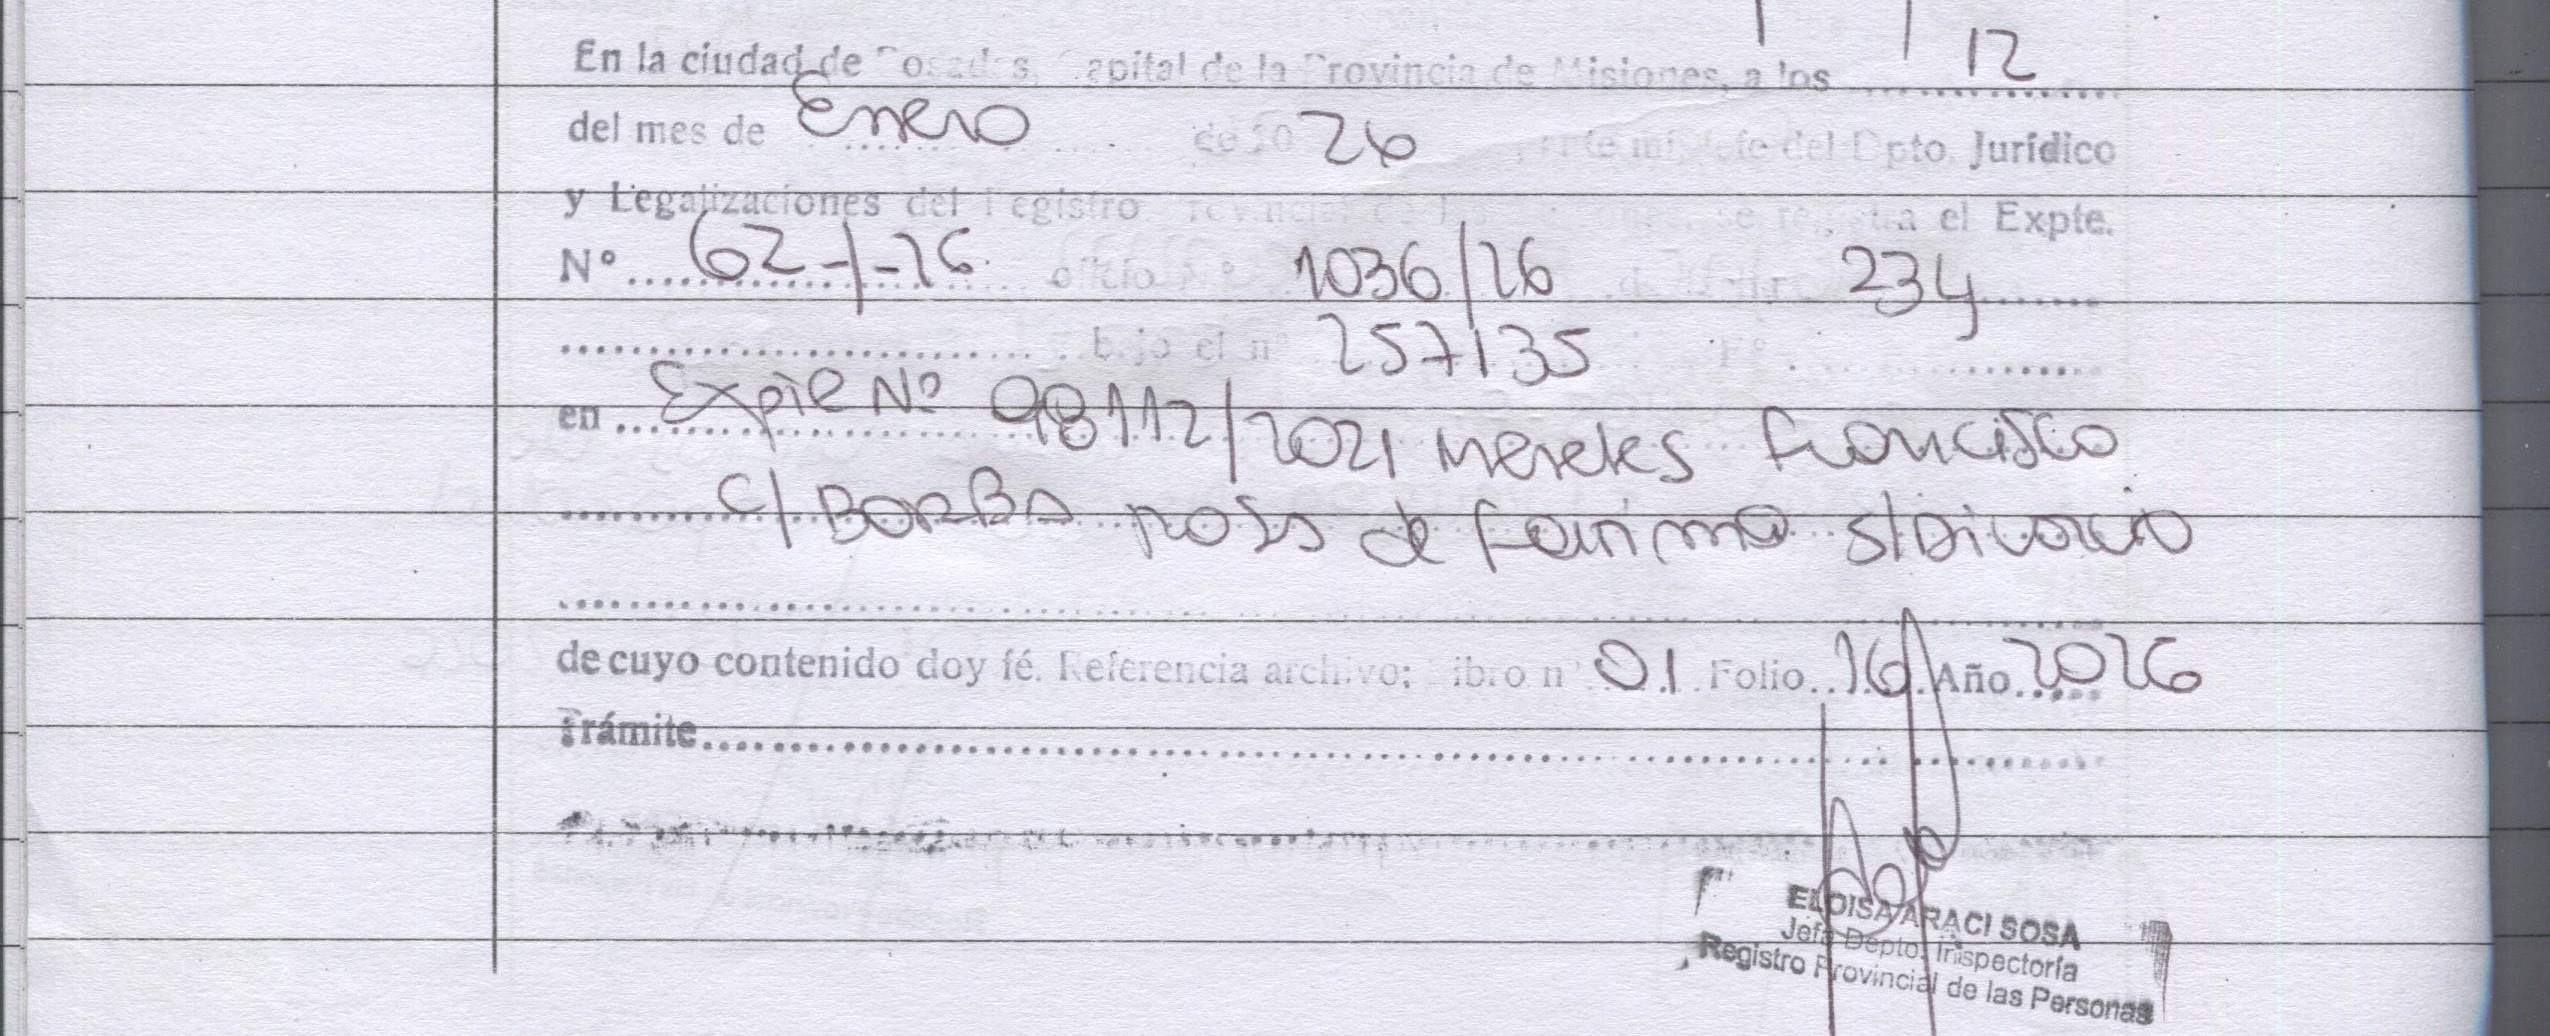 En la ciudad de Posadas, Capital de la Provincia de Misiones, a los 12
del mes de Enero de 20 26 , ante mi, Jefe del Dpto. Jurídico
y Legalizaciones del Registro Provincial de las se registra el Expte.
N° 62-/-26 oficio N° 1036/26 234
bajo el n° 257135 F°
en Expte Nº 98112/2021 Mereles Francisco
c/ BORBA ROSA de Farima s/Divorcio
de cuyo contenido doy fé. Referencia archivo; libro n° 01 Folio 16 Año 2026
Trámite
ELOISA ARACI SOSA
Jefa Depto. Inspectoría
Registro Provincial de las Personas